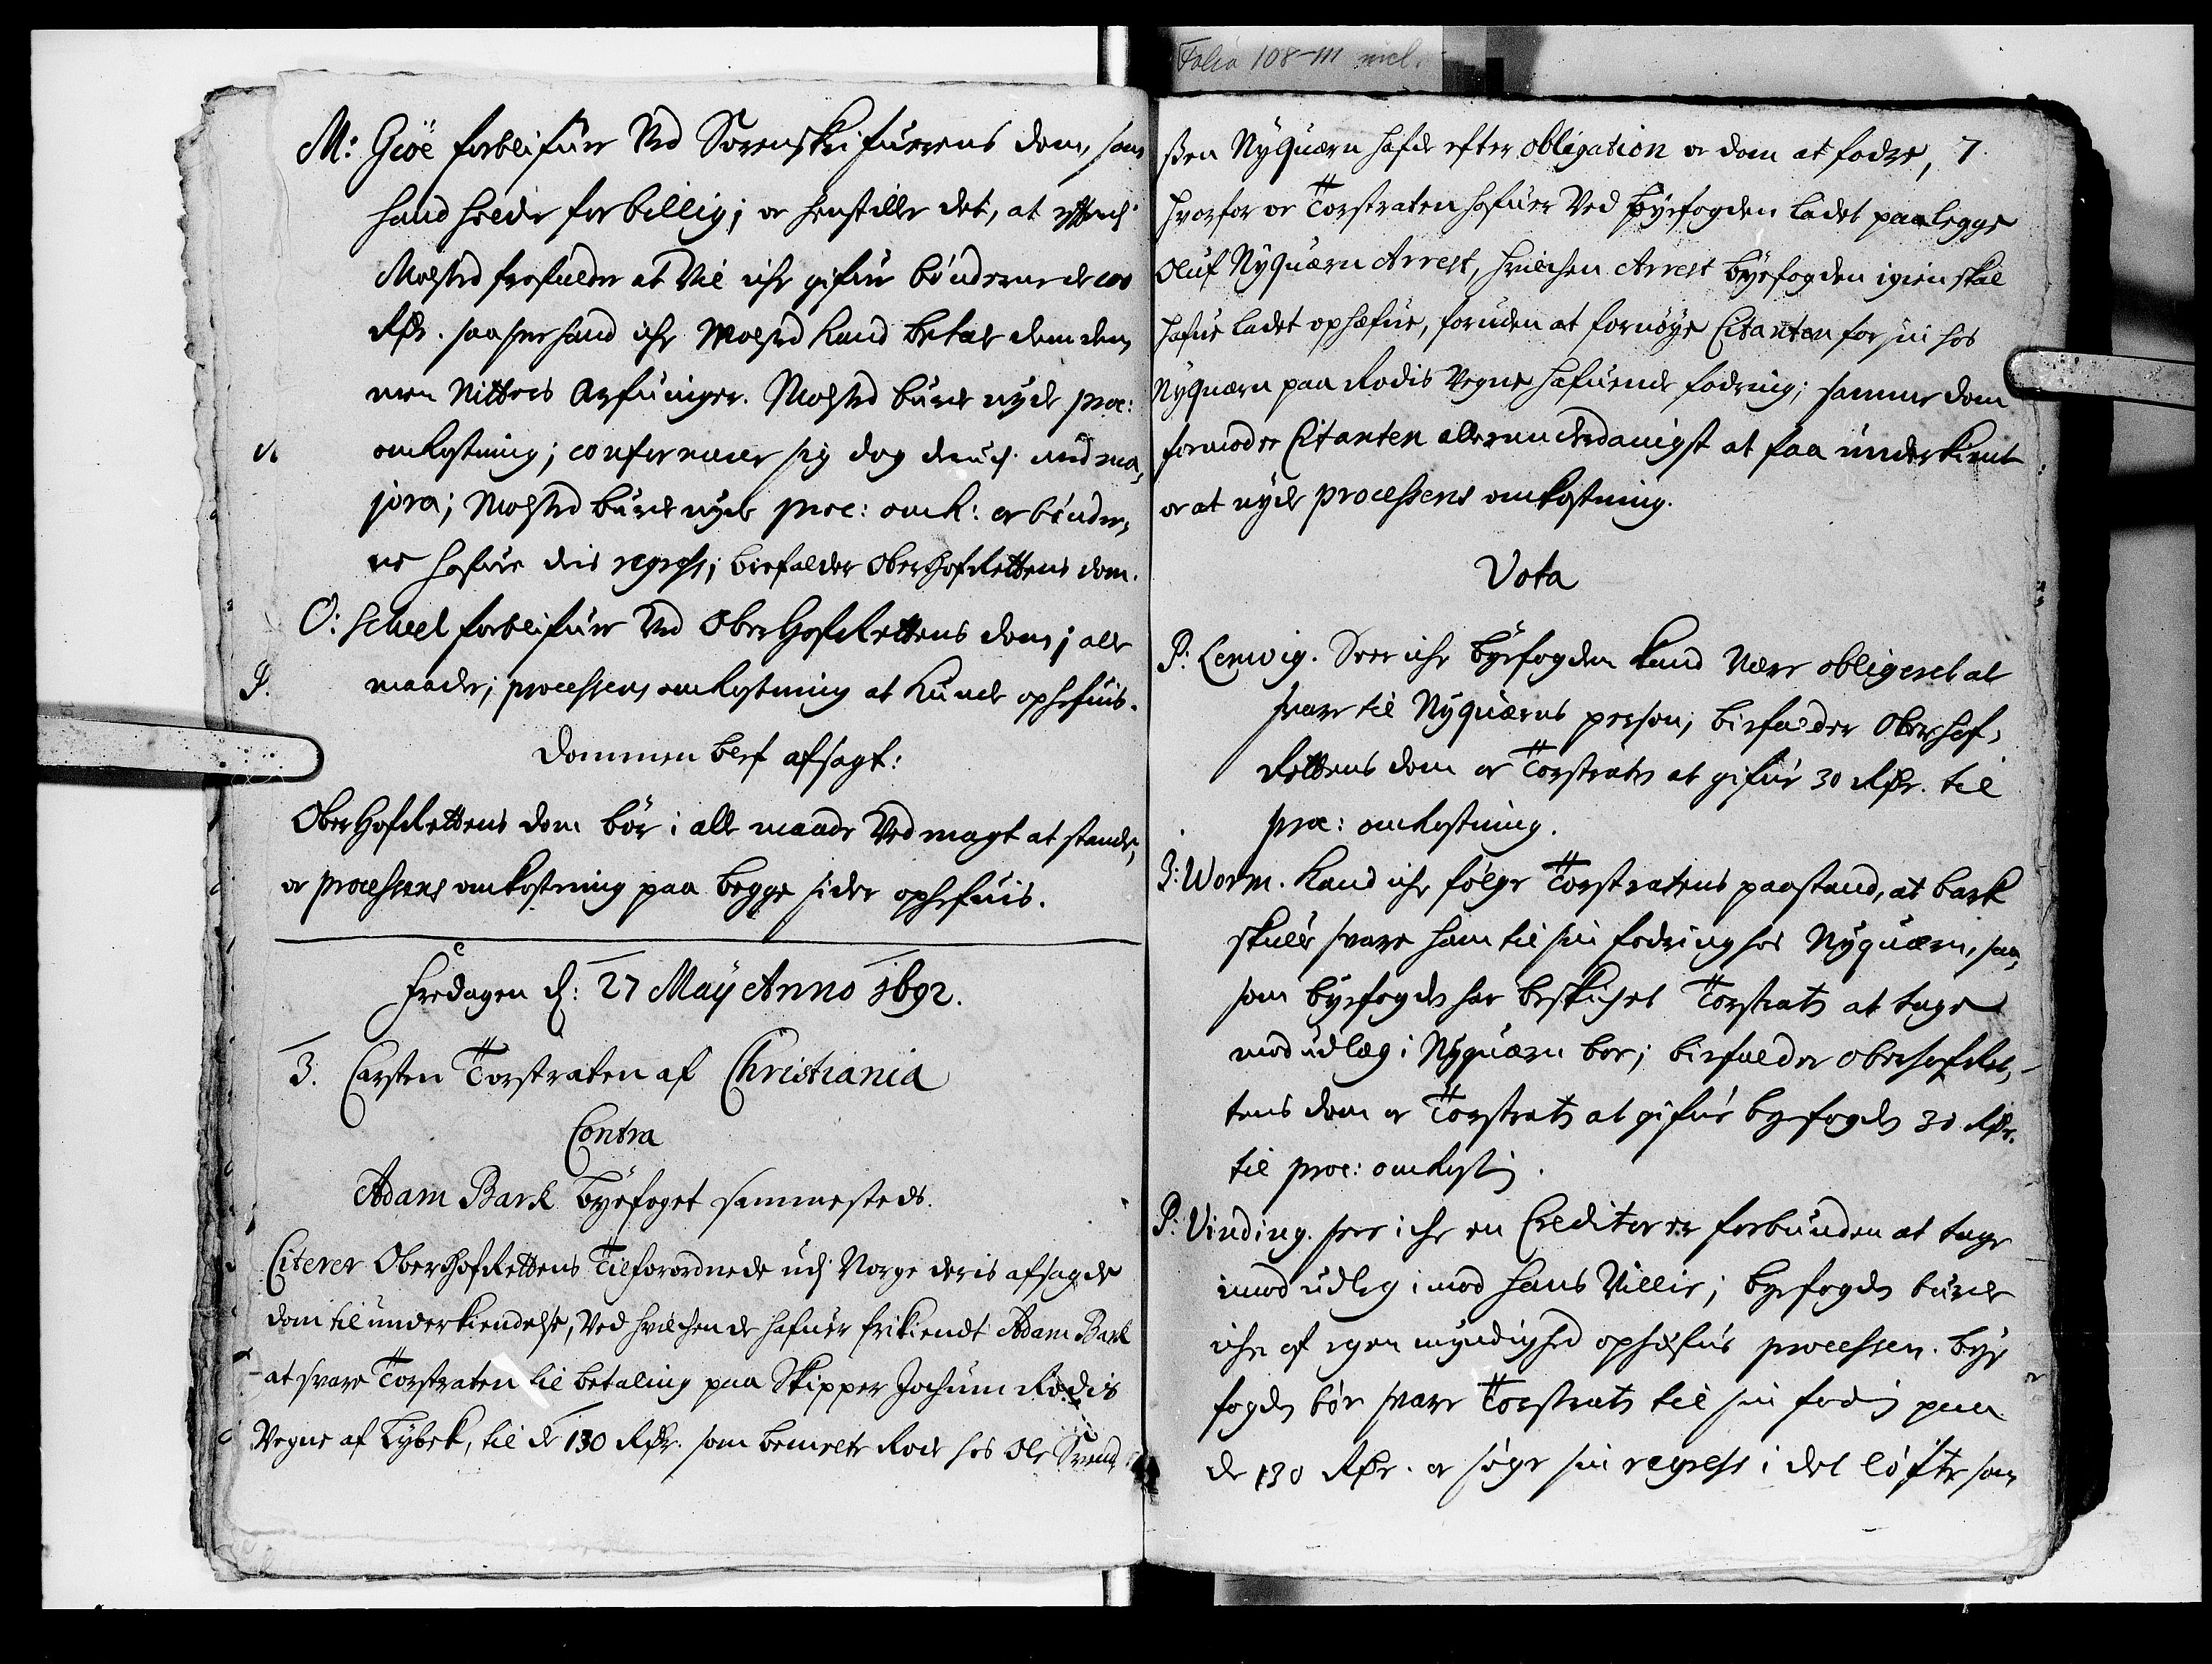 Folio 108-111 incl.
M: Giöe forblifuer Ved Sorenskrifuerens dom, som
hand holder for billig; oc henstiller det, at efftersom
Molsted frafalder at Vil iche gifue bönderne de 100
Rdr. saa seer hand iche Molsted kand betale dem dem,
men Nitters Arfuinger. Molsted burde nyde proc:
omkostning; confermerer sig dog deruch med ma,
jora; Molsted burde nyde proc: omk: oc bönder,
ne hafue deis regress; biefalder OberHofRettens dom.
O: Scheel forblifuer Ved OberHofRettens dom j alle
maader; processens omkostning at kunde ophefuis.
Dommen blef afsagt:
OberHofRettens dom bör i alle maade Ved magt at stande,
oc processens omkostning paa begge sider ophefuis.
Fredagen d: 27 Maÿ Anno 1692.
3. Carsten Torstraten af Christiania
Contra
Adam Bark Byefoget sammesteds.
Citerer OberHofRettens Tilforordnede udj Norge deris afsagde
dom til underkiendelse, Ved hvilchen de hafuer frikiendt Adam Bark
at svare Torstraten til betaling paa Skipper Jochum Rodis
Vegne af Lybek, til de 130 Rdr. som bemelte Rode hos Ole Svend
ßen NyQuærn hafde efter obligation oc dom at fodre, 7.
hvorfor oc Torstraten hafuer Ved Byefogden ladet paalegge
Oluf NyQuærn Arrest, hvilchen Arrest Byefogden igien skal
hafue ladet ophæfue, foruden at fornöye Citanten for sin hos
NyQuærn paa Rodis Vegne hafuende fodring; samme dom
formoder Citanten allerunderdanigst at faa underkient
oc at nyde processens omkostning.
Vota
P: Lerwig. Seer iche Byefogden kand Være obligeret at
svare til NyQuærns person, biefalder Oberhof,
Rettens dom oc Torstraten at gifue 30 Rdr. til
proc: omkostning.
J: Worm. Kand iche fölge Torstratens paastand, at Bark
skulle svare ham til sin fodring hos NyQuærn, saa,
som byefogden har beskichet Torstraten at tage
mod udlæg i NyQuærn boe; biefalder OberhofRet,
tens dom oc Torstraten at gifue byefogden 30 Rdr.
til proc: omkostning.
P: Vinding. seer iche en Creditor er forbunden at tage
imod udleg imod hans Villie; byefogden burde
iche af egen myndighed ophæfue processen. bye
fogden bör svare Torstraten til sin fodring paa
de 130 Rdr. oc söge sin regress i det löfte som